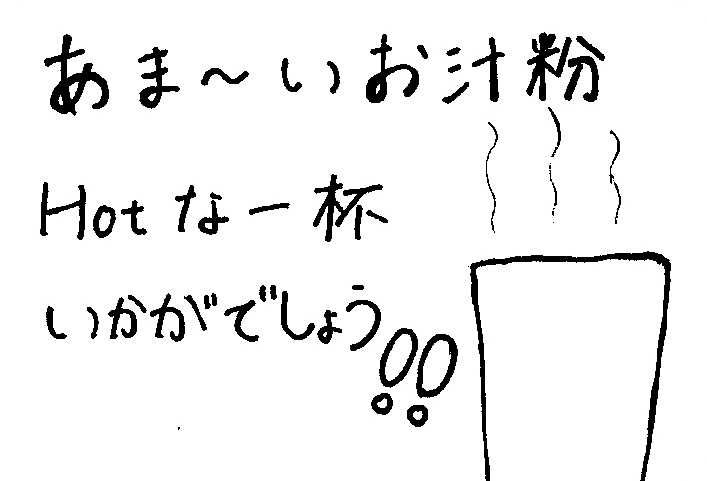 あま〜いお汁粉
Hotな一杯
いかがでしょう!!